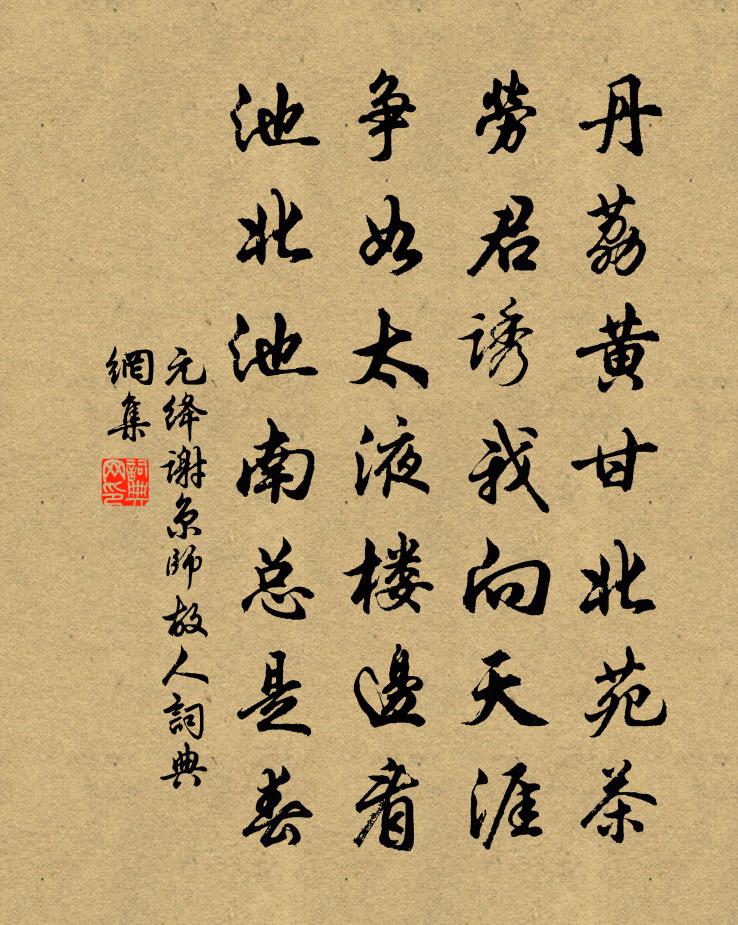 丹荔黄甘北苑茶
劳君诱我向天涯
争如太液楼邊看
池北池南总是春
元绛谢京師故人詞典
網集
詞典網印